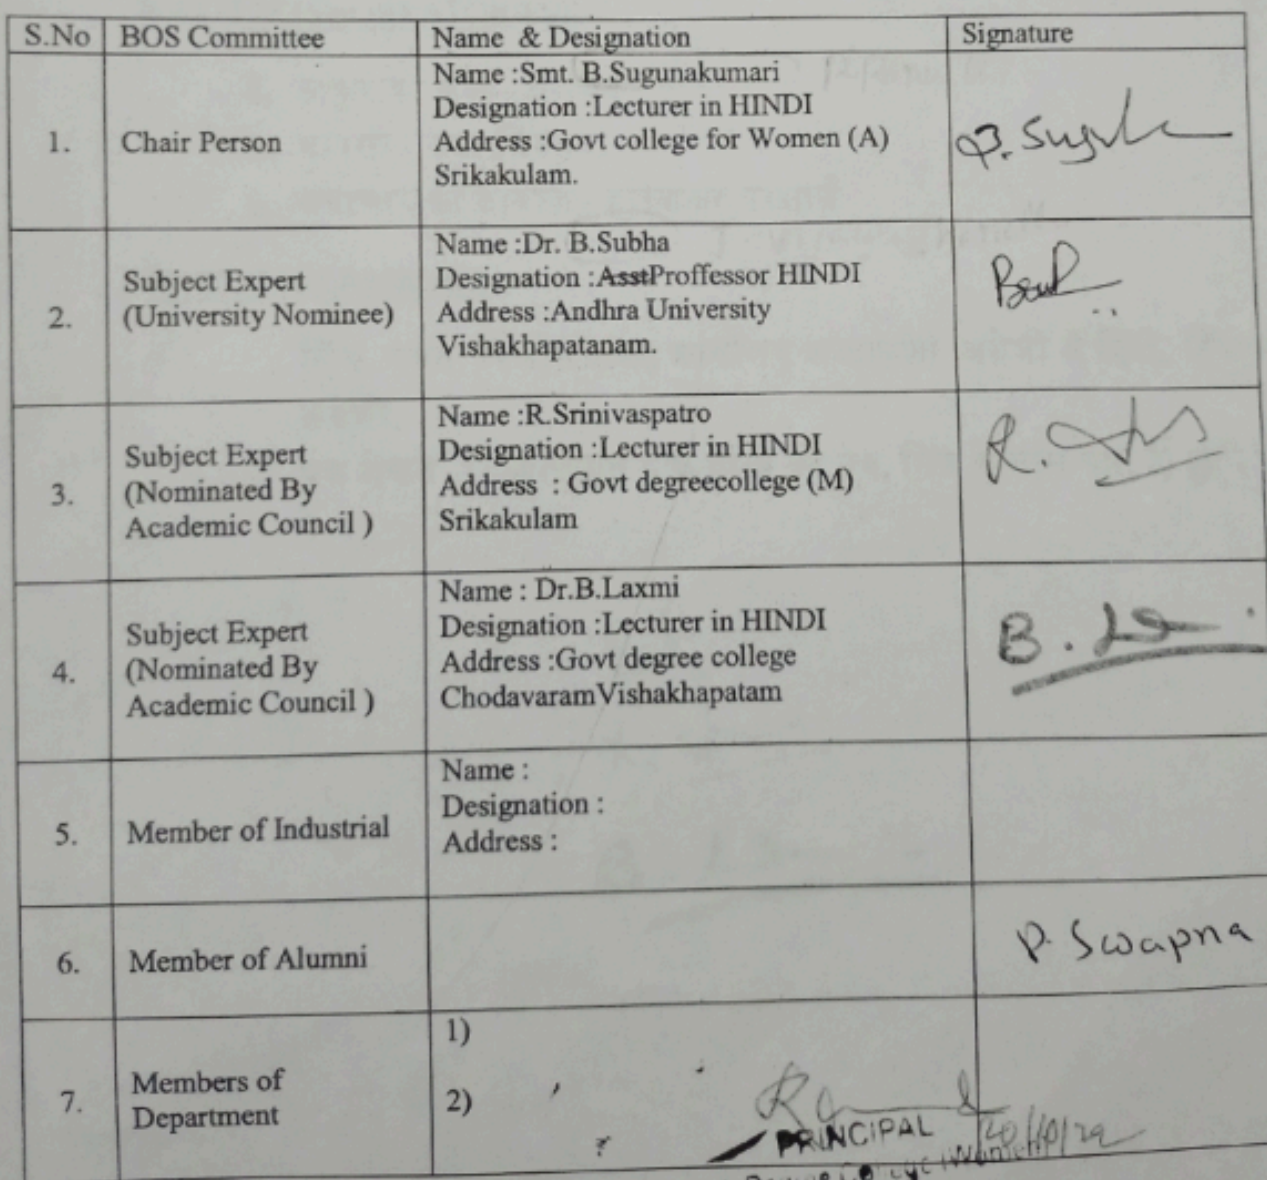 S.No BOS Committee Name & Designation Signature
1. Chair Person
Name :Smt. B.Sugunakumari
Designation :Lecturer in HINDI
Address :Govt college for Women (A)
Srikakulam.
2. Subject Expert
(University Nominee)
Name :Dr. B.Subha
Designation :AsstProffessor HINDI
Address :Andhra University
Vishakhapatanam.
3. Subject Expert
(Nominated By
Academic Council )
Name :R.Srinivaspatro
Designation :Lecturer in HINDI
Address : Govt degreecollege (M)
Srikakulam
R.
4. Subject Expert
(Nominated By
Academic Council )
Name : Dr.B.Laxmi
Designation :Lecturer in HINDI
Address :Govt degree college
ChodavaramVishakhapatam
B.
5. Member of Industrial
Name :
Designation :
Address :
6. Member of Alumni
P. Swapna
7. Members of
Department
1)
2)
PRINCIPAL